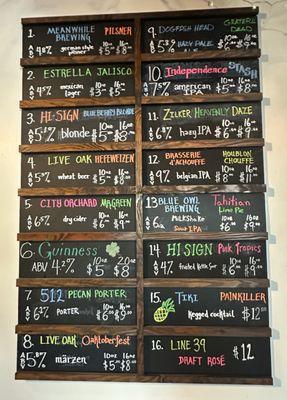 1. MEANWHILE BREWING PILSNER
ABV 4.8% german style pilsner 10oz $5 16oz $8
2. ESTRELLA JALISCO
4.5% mexican lager 10oz $5 16oz $7
3. HI-SIGN BLUEBERRY BLONDE
ABV blonde 10oz $5 16oz $8
4. LIVE OAK HEFEWEIZEN
wheat beer 10oz $5 16oz $8
5. CITY ORCHARD MAGREEN
dry cider 10oz $6 16oz $9
6. Guinness
ABV 4.2% 10oz $5 20oz $8
7. 512 PECAN PORTER
PORTER 10oz $6 16oz $9
8. LIVE OAK Oaktoberfest
ABV 5.8% märzen 10oz $5 16oz $8
9. DOGFISH HEAD GRATEFUL DEAD
PALE
10. Independence STASH
AMERICAN
11. ZILKER HEAVENLY DAZE
hazy IPA 10oz $6 16oz $9
12. BRASSERIE D'ACHOUFFE HOUBLON CHOUFFE
ABV 9% belgian IPA 10oz $8 16oz $11
13. BLUE OWL BREWING Tahitian Lime Pie
MilkShake Sour IPA 10oz $6 16oz $9
14. HI SIGN Pink Tropics
fruited Kettle Sour 10oz $6 16oz $9
15. TIKI PAINKILLER
Kegged cocktail $12
16. LINE 39
DRAFT ROSÉ $12